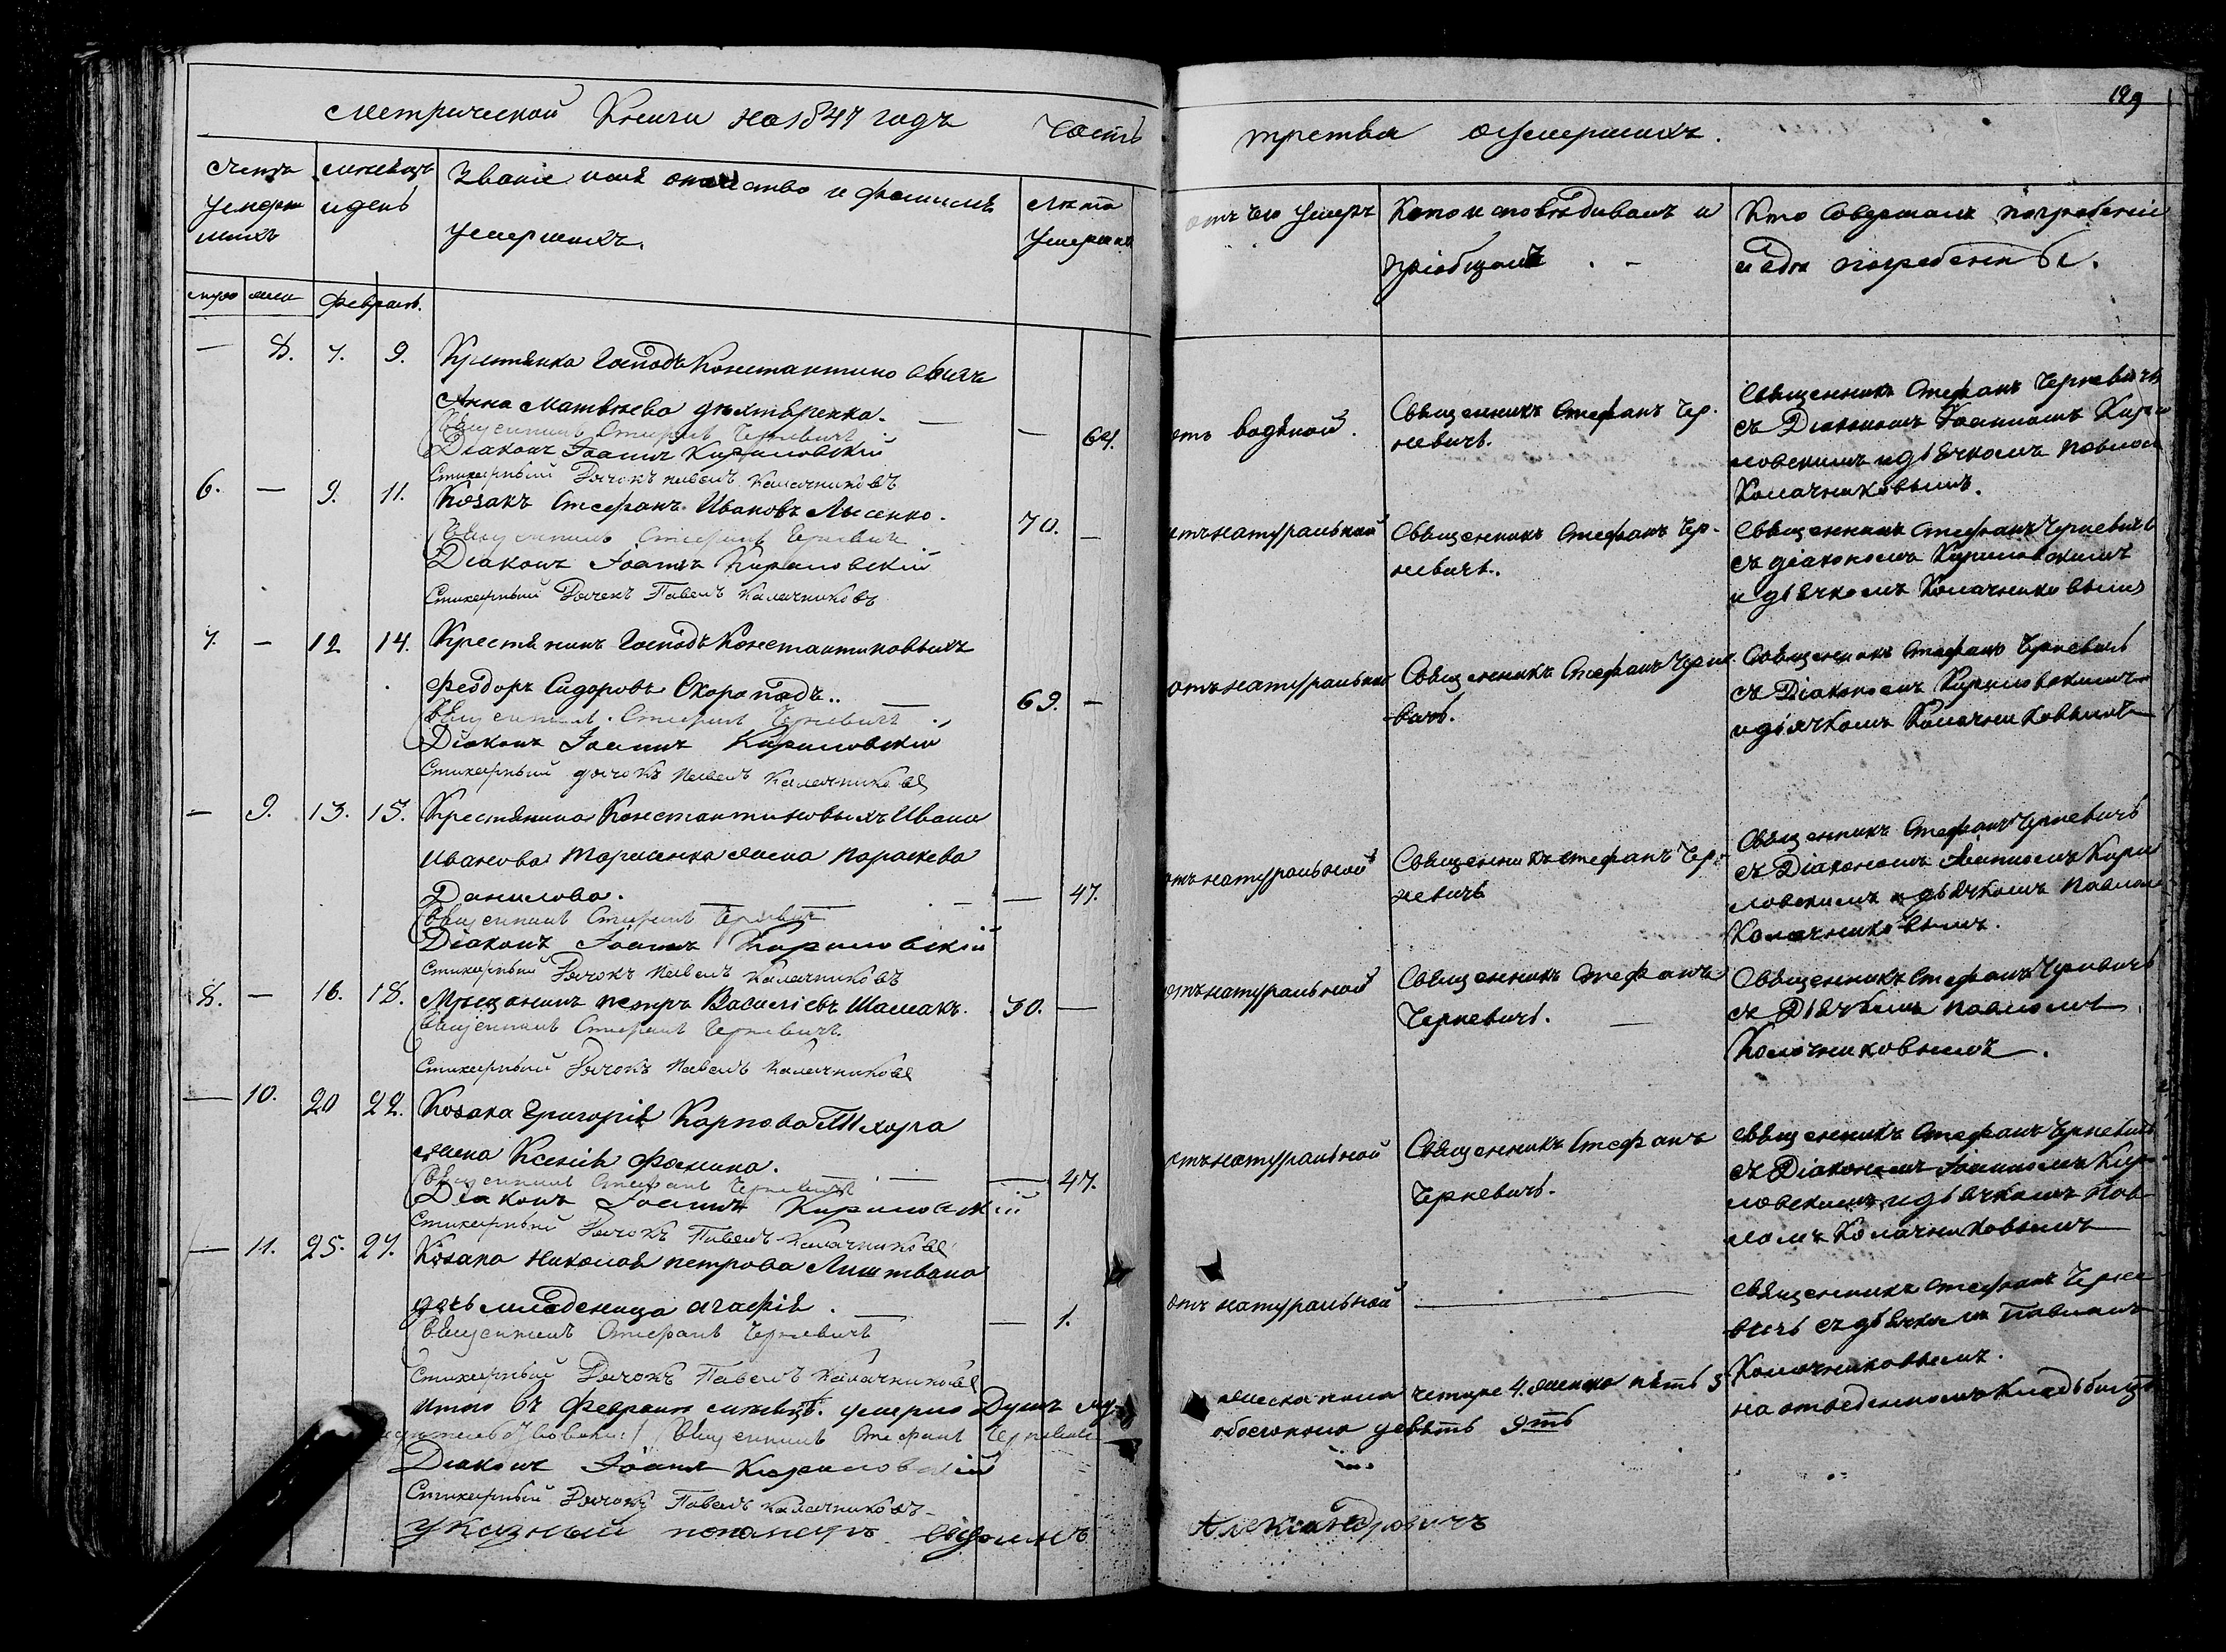 Метрической Книги на 1847 годъ Часть
третья о умершихъ.
129
Счетъ умершихъ
месяцъ и день
Званіе имя отчество и фамилія умершихъ.
Лета умершихъ
отъ чего умеръ
Кто исповедивалъ и пріобщалъ
Кто Совершалъ погребеніе и где погребены.
муж жен Февраль.
— 8. 7. 9. Крестянка Господъ Константиновыхъ
Анна Матвеева
— 64.
Священникъ Стефанъ Черневичъ
Діаконъ Іоаннъ Кириловскій
Стихарный Дячокъ Павелъ Калачниковъ
отъ водяной.
Священникъ Стефанъ Чер-
невичъ.
Священникъ Стефанъ Черневичъ
съ Діакономъ Іоанномъ Кири
ловскимъ и дьячкомъ Павломъ
Колачниковымъ.
6. — 9. 11. Козакъ Стефанъ Ивановъ Лысенко.
70. —
Священникъ Стефанъ Черневичъ
Діаконъ Іоаннъ Кириловскій
Стихарный Дячекъ Павелъ Калачниковъ
отъ натуральной
Священникъ Стефанъ Чер-
невичъ.
Священникъ Стефанъ Черневичъ
съ діакономъ Кириловскимъ
и дьячкомъ Колачниковымъ
7. — 12 14. Крестянинъ Господъ Константиновыхъ
Феодоръ Сидоровъ Скоропадъ..
69. —
Священникъ Стефанъ Черневичъ
Діаконъ Іоаннъ Кириловскій
Стихарный дячокъ Павелъ Калачниковъ
отъ натуральной
Священникъ Стефанъ Черне
вичъ.
Священникъ Стефанъ Черневичъ
съ Діакономъ Кириловскимъ
и дьячкомъ Колачниковымъ
— 9. 13. 15. Крестянина Константиновыхъ Ивана
Иванова жена Параскева
Данилова.
— 47.
Священникъ Стефанъ Черневичъ
Діаконъ Іоаннъ Кириловскій
Стихарный Дячокъ Павелъ Калачниковъ
отъ натуральной
Священникъ Стефанъ Чер-
невичъ
Священникъ Стефанъ Черневичъ
съ Діакономъ Іоанномъ Кири
ловскимъ и дьячкомъ Павломъ
Колачниковымъ.
8. — 16. 18. Мещанинъ Петръ Василіевъ Шамакъ.
30. —
Священникъ Стефанъ Черневичъ
Стихарный Дячокъ Павелъ Калачниковъ
отъ натуральной
Священникъ Стефанъ
Черневичъ. —
Священникъ Стефанъ Черневичъ
съ Дьячкомъ Павломъ
Колачниковымъ.
— 10. 20 22. Козака Григорія Карпова
жена Ксенія Фомина.
— 47.
Священникъ Стефанъ Черневичъ
Діаконъ Іоаннъ Кириловскій
Стихарный Дячокъ Павелъ Калачниковъ
отъ натуральной
Священникъ Стефанъ
Черневичъ.
священникъ Стефанъ Черневичъ
съ Діакономъ Іоанномъ Кири
ловскимъ и дьячкомъ Пав
ломъ Колачниковымъ
— 11. 25. 27. Козака Николая Петрова Лиштвана
дочь младеница Агафія.
— 1.
Священникъ Стефанъ Черневичъ
Стихарный Дячокъ Павелъ Калачниковъ
отъ натуральной
священникъ Стефанъ Черне
вичъ съ дьячкомъ Павломъ
Колачниковымъ.
на отведенномъ кладбищѣ
Итого въ Февралѣ месяцѣ умерло Душъ му-
жеска пола четыре 4. женска пять 5
обоего пола девять 9ть
Священникъ Стефанъ Черневичъ
Діаконъ Іоаннъ Кириловскій
Стихарный Дячокъ Павелъ Калачниковъ
Указный пономаръ
Александровичъ